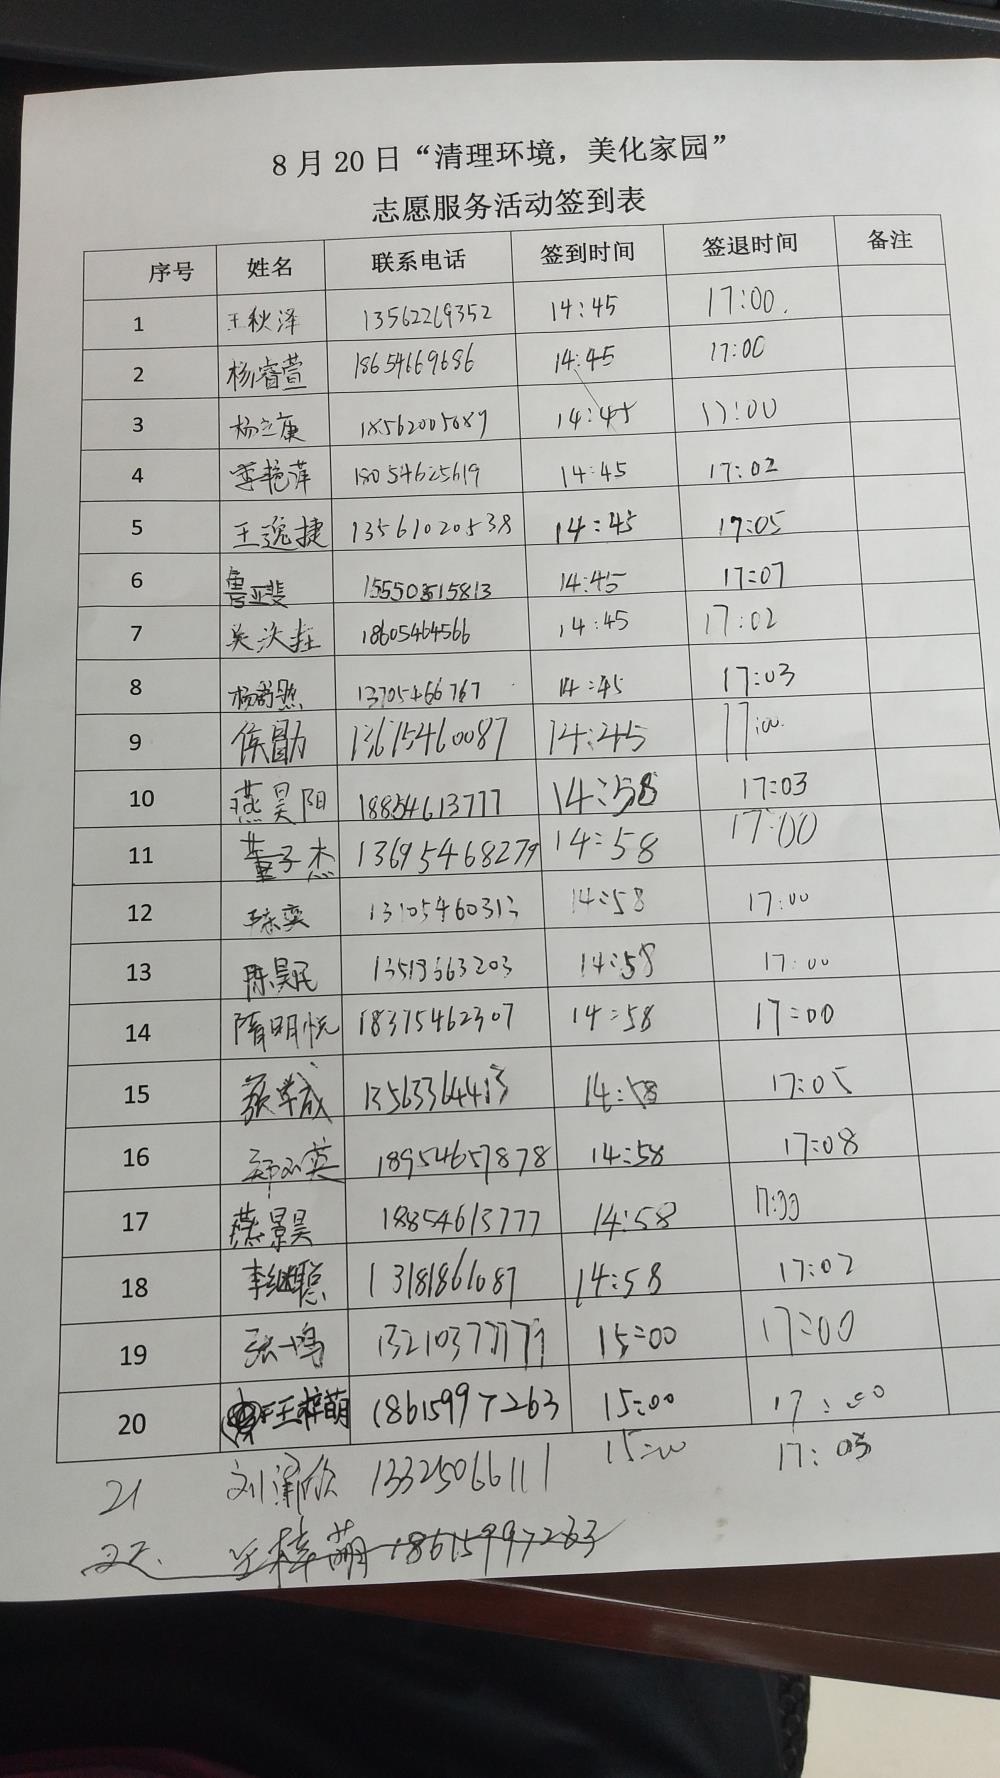 8月20日“清理环境，美化家园”
志愿服务活动签到表
序号 姓名 联系电话 签到时间 签退时间 备注
1 王秋泽 13562269352 14:45 17:00.
2 杨睿萱 18654669686 14:45 17:00
3 杨立康 14:45 17:00
4 李艳萍 18054625619 14:45 17:02
5 王逸捷 13561020538 14:45 17:05
6 鲁亚斐 14:45 17:07
7 18605464566 14:45 17:02
8 13705466767 14:45 17:03
9 侯勖力 13615460087 14:45 17:00
10 燕昊阳 18854613777 14:58 17:03
11 董子杰 13695468279 14:58 17:00
12 13105460313 14:58 17:00
13 陈昊民 14:58 17:00
14 隋明悦 18375462307 14:58 17:00
15 13563364413 14:58 17:05
16 18954657878 14:58 17:08
17 燕景昊 18854613777 14:58
18 李继聪 13181861087 14:58 17:02
19 张一鸣 15:00 17:00
20 王梓萌 18615997263 15:00 17:00
21 13325066111 15:00 17:03
王梓萌 18615997263